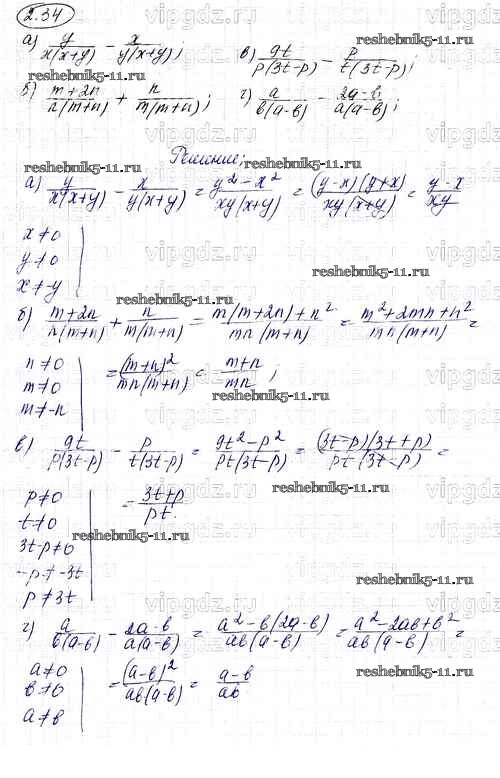 2.34
а) y/x(x+y) − x/y(x+y); в) 9t/p(3t-p) − p/t(3t-p);
reshebnik5-11.ru reshebnik5-11.ru
б) m+2n/n(m+n) + n/m(m+n); г) a/b(a-b) − 2a-b/a(a-b);
Решение;
reshebnik5-11.ru reshebnik5-11.ru
а) y/x(x+y) − x/y(x+y) = y²-x²/xy(x+y) = (y-x)(y+x)/xy(x+y) = y-x/xy
x≠0
y≠0
x≠y
vipgdz.ru
reshebnik5-11.ru
б) m+2n/n(m+n) + n/m(m+n) = m(m+2n)+n²/mn(m+n) = m²+2mn+n²/mn(m+n) =
n≠0
m≠0
m≠-n
= (m+n)²/mn(m+n) = m+n/mn;
reshebnik5-11.ru
в) 9t/p(3t-p) − p/t(3t-p) = 9t²-p²/pt(3t-p) = (3t-p)(3t+p)/pt(3t-p) =
reshebnik5-11.ru
p≠0
t≠0
3t-p≠0
-p≠-3t
p≠3t
= 3t+p/pt
reshebnik5-11.ru
reshebnik5-11.ru
г) a/b(a-b) − 2a-b/a(a-b) = a²-b(2a-b)/ab(a-b) = a²-2ab+b²/ab(a-b) =
a≠0
b≠0
a≠b
= (a-b)²/ab(a-b) = a-b/ab
reshebnik5-11.ru